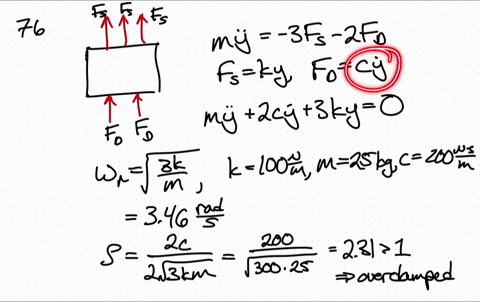 76
F_S F_S F_S
F_D F_D
mÿ = -3F_S - 2F_D
F_S = ky, F_D = cẏ
mÿ + 2cẏ + 3ky = 0
ω_n = √(3k/m), k = 100 N/m, m = 25 kg, c = 200 Ns/m
= 3.46 rad/s
ζ = 2c/(2√(3km)) = 200/√(300·25) = 2.31 > 1
⇒ overdamped